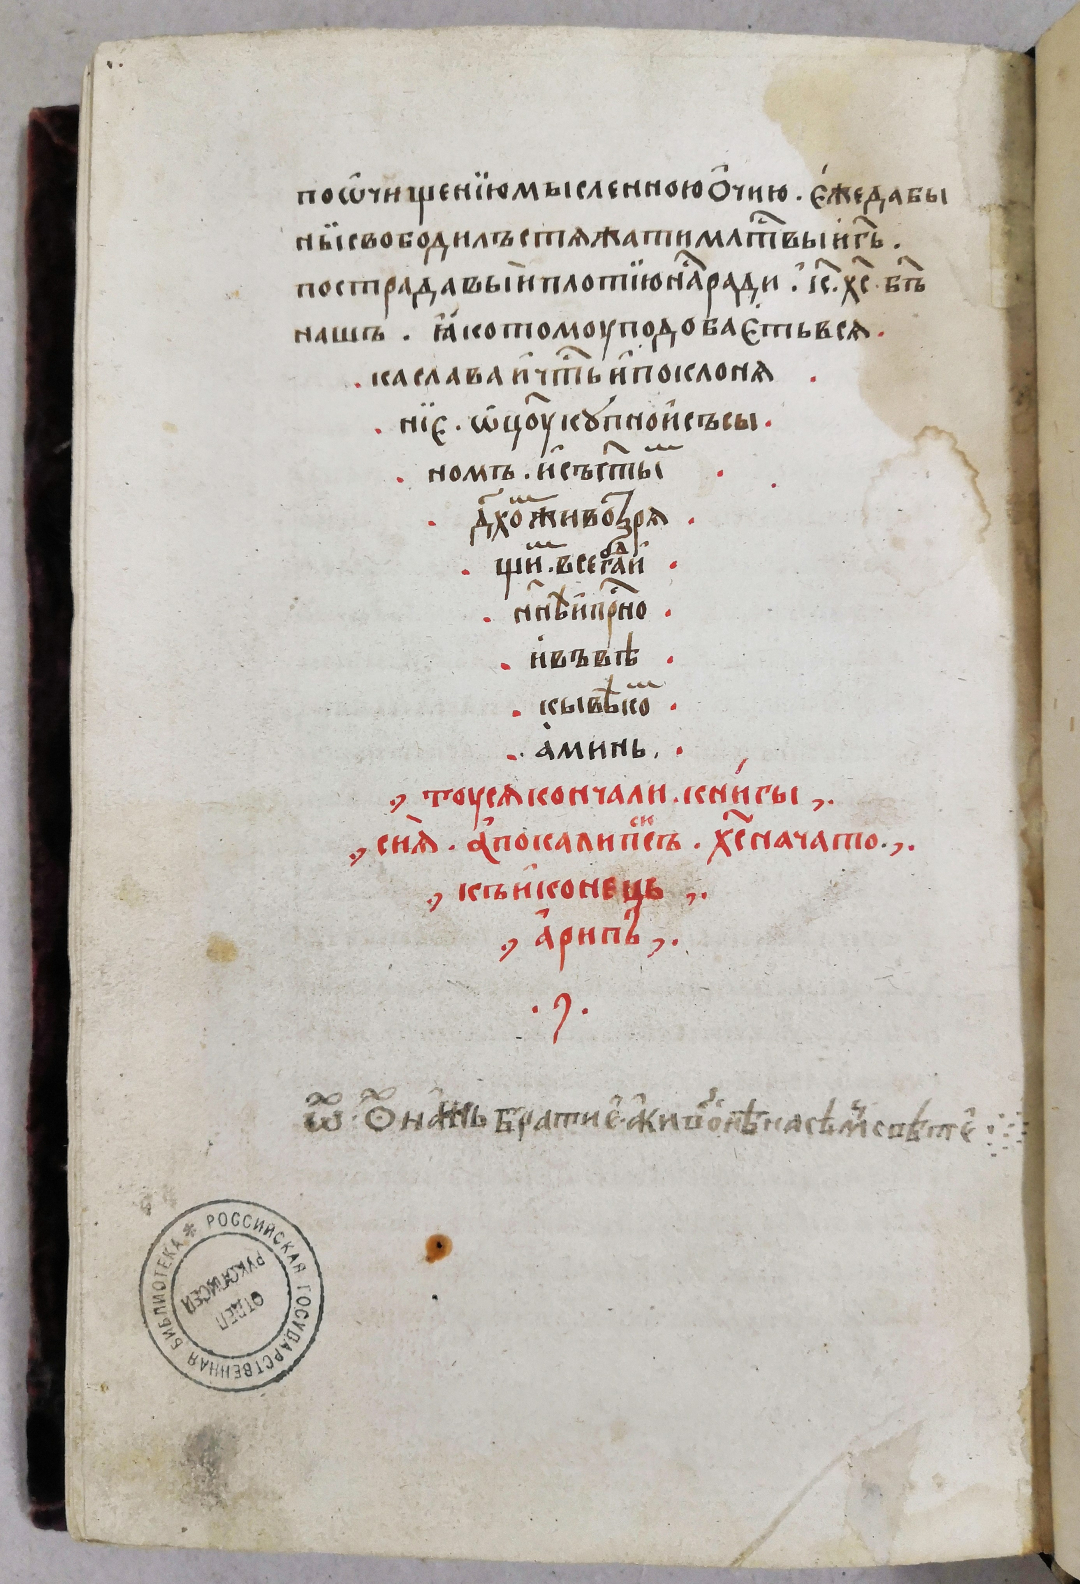 поѡ҆чищенїюмысленноюо҆чию . є҆жедабы
ны̏свободилъстѧжатимлт҇выи҆гь҇ .
пострадавыи҆плотїюна҇ради . і҆с҇ . хс҇ . бг҇ъ
нашъ . ꙗ҆котомоуподобаєтьвсѧ
каслава и҆чт҇ь и҆поклонѧ
нїє . ѡ҆цо҇укꙋпнои҆съсы
номъ . и҆съст҇ыⷨ
дх҇оⷨживоꙁрѧ
щиⷨ . всегдаи҆
нн҇ѣи҆пр҇но
и҆въвѣ
кывѣкоⷨ
а҆минь .
тоусѧкончали . книгы
сиѧ̀ . а҆покалипсисъ . хс҇ = начато .
къи҆конець
а҆рипв҇
ѿ . онань братие живо
РОССИЙСКАЯ ГОСУДАРСТВЕННАЯ БИБЛИОТЕКА
ОТДЕЛ
РУКОПИСЕЙ